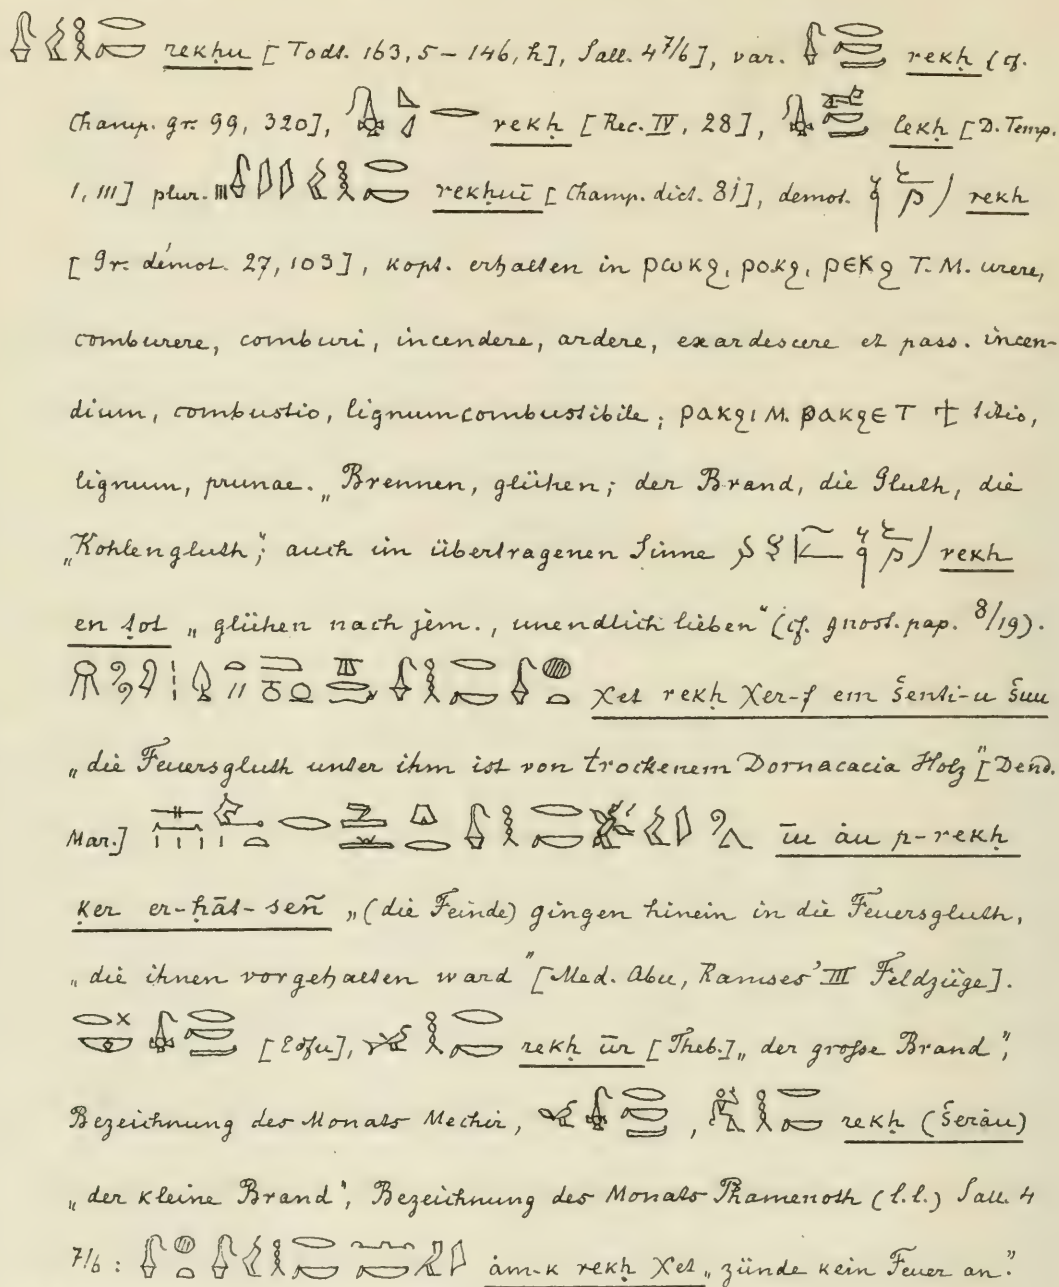 rekḥu [Todt. 163, 5 – 146, h], Sall. 4 7/6], var. rekḥ (cf.
Champ. gr. 99, 320], rekḥ [Rec. IV, 28], lekḥ [D. Temp.
I, III] plur. rekḥuī [Champ. dict. 81], demot. rekh
[Gr. démot. 27, 103], kopt. erhalten in ⲣⲱⲕϩ, ⲣⲟⲕϩ, ⲣⲉⲕϩ T. M. urere,
comburere, comburi, incendere, ardere, exardescere et pass. incen-
dium, combustio, lignum combustibile; ⲣⲁⲕϩⲓ M. ⲣⲁⲕϩⲉ T ϯ titio,
lignum, prunae. „Brennen, glühen; der Brand, die Gluth, die
„Kohlengluth"; auch im übertragenen Sinne rekh
en ṭot „glühen nach jem., unendlich lieben" (cf. gnost. pap. 8/19).
χet rekḥ χer-f em šenti-u šuu
„die Feuersgluth unter ihm ist von trockenem Dornacacia Holz" [Dend.
Mar.] īu àu p-rekḥ
ḳer er-ḥāt-señ „(die Feinde) gingen hinein in die Feuersgluth,
„die ihnen vorgehalten ward" [Med. Abu, Ramses' III Feldzüge].
[Edfu], rekḥ ūr [Theb.] „der große Brand",
Bezeichnung des Monats Mechir, rekḥ (šeràu)
„der kleine Brand", Bezeichnung des Monats Phamenoth (l.l.) Sall. 4
7/6: àm-k rekḥ χet „zünde kein Feuer an".